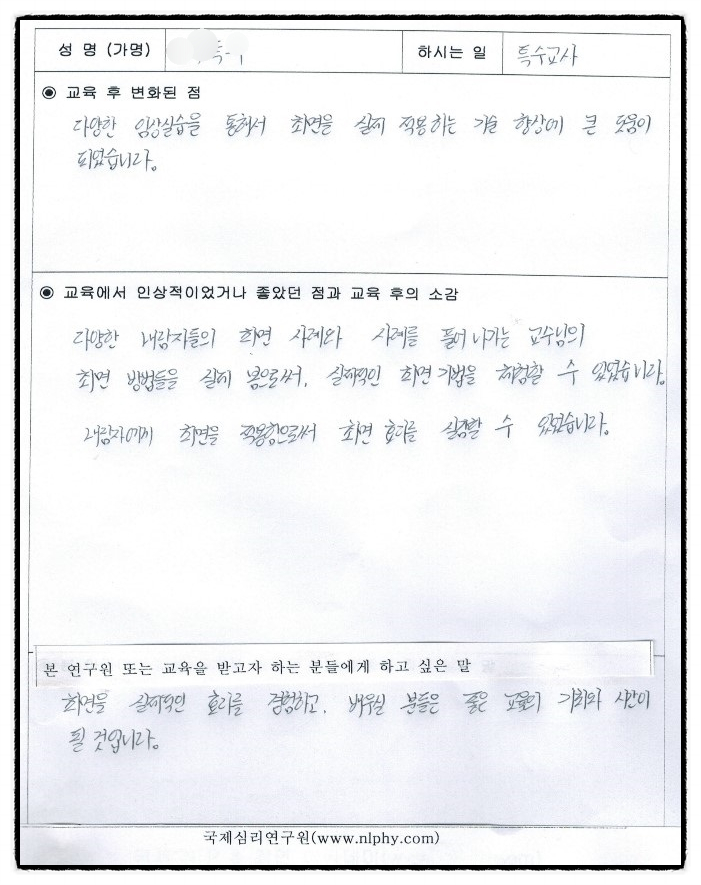 성 명 (가명) 하시는 일 특수교사
◉ 교육 후 변화된 점
다양한 임상실습을 통해서 최면을 실제 적용하는 기술 향상에 큰 도움이
되었습니다.
◉ 교육에서 인상적이었거나 좋았던 점과 교육 후의 소감
다양한 내담자들의 최면 사례와 사례를 풀어 나가는 교수님의
최면 방법들을 실제 봄으로써, 실제적인 최면기법을 체험할 수 있었습니다.
내담자에게 최면을 적용함으로써 최면 효과를 실감할 수 있었습니다.
본 연구원 또는 교육을 받고자 하는 분들에게 하고 싶은 말
최면을 실제적인 효과를 경험하고, 배우실 분들은 좋은 교육의 기회와 시간이
될 것입니다.
국제심리연구원(www.nlphy.com)